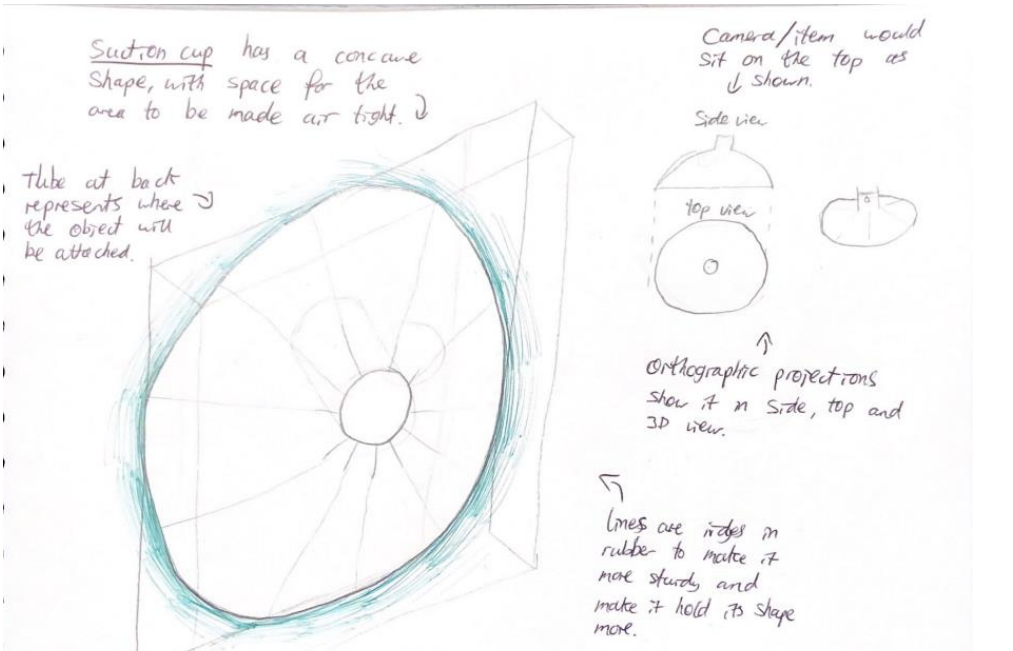 Suction cup has a concave
shape, with space for the
area to be made air tight.
Tube at back
represents where
the object will
be attached.
Camera/item would
sit on the top as
shown.
Side view
top view
Orthographic projections
show it in side, top and
3D view.
lines are ridges in
rubber to make it
more sturdy and
make it hold its shape
more.